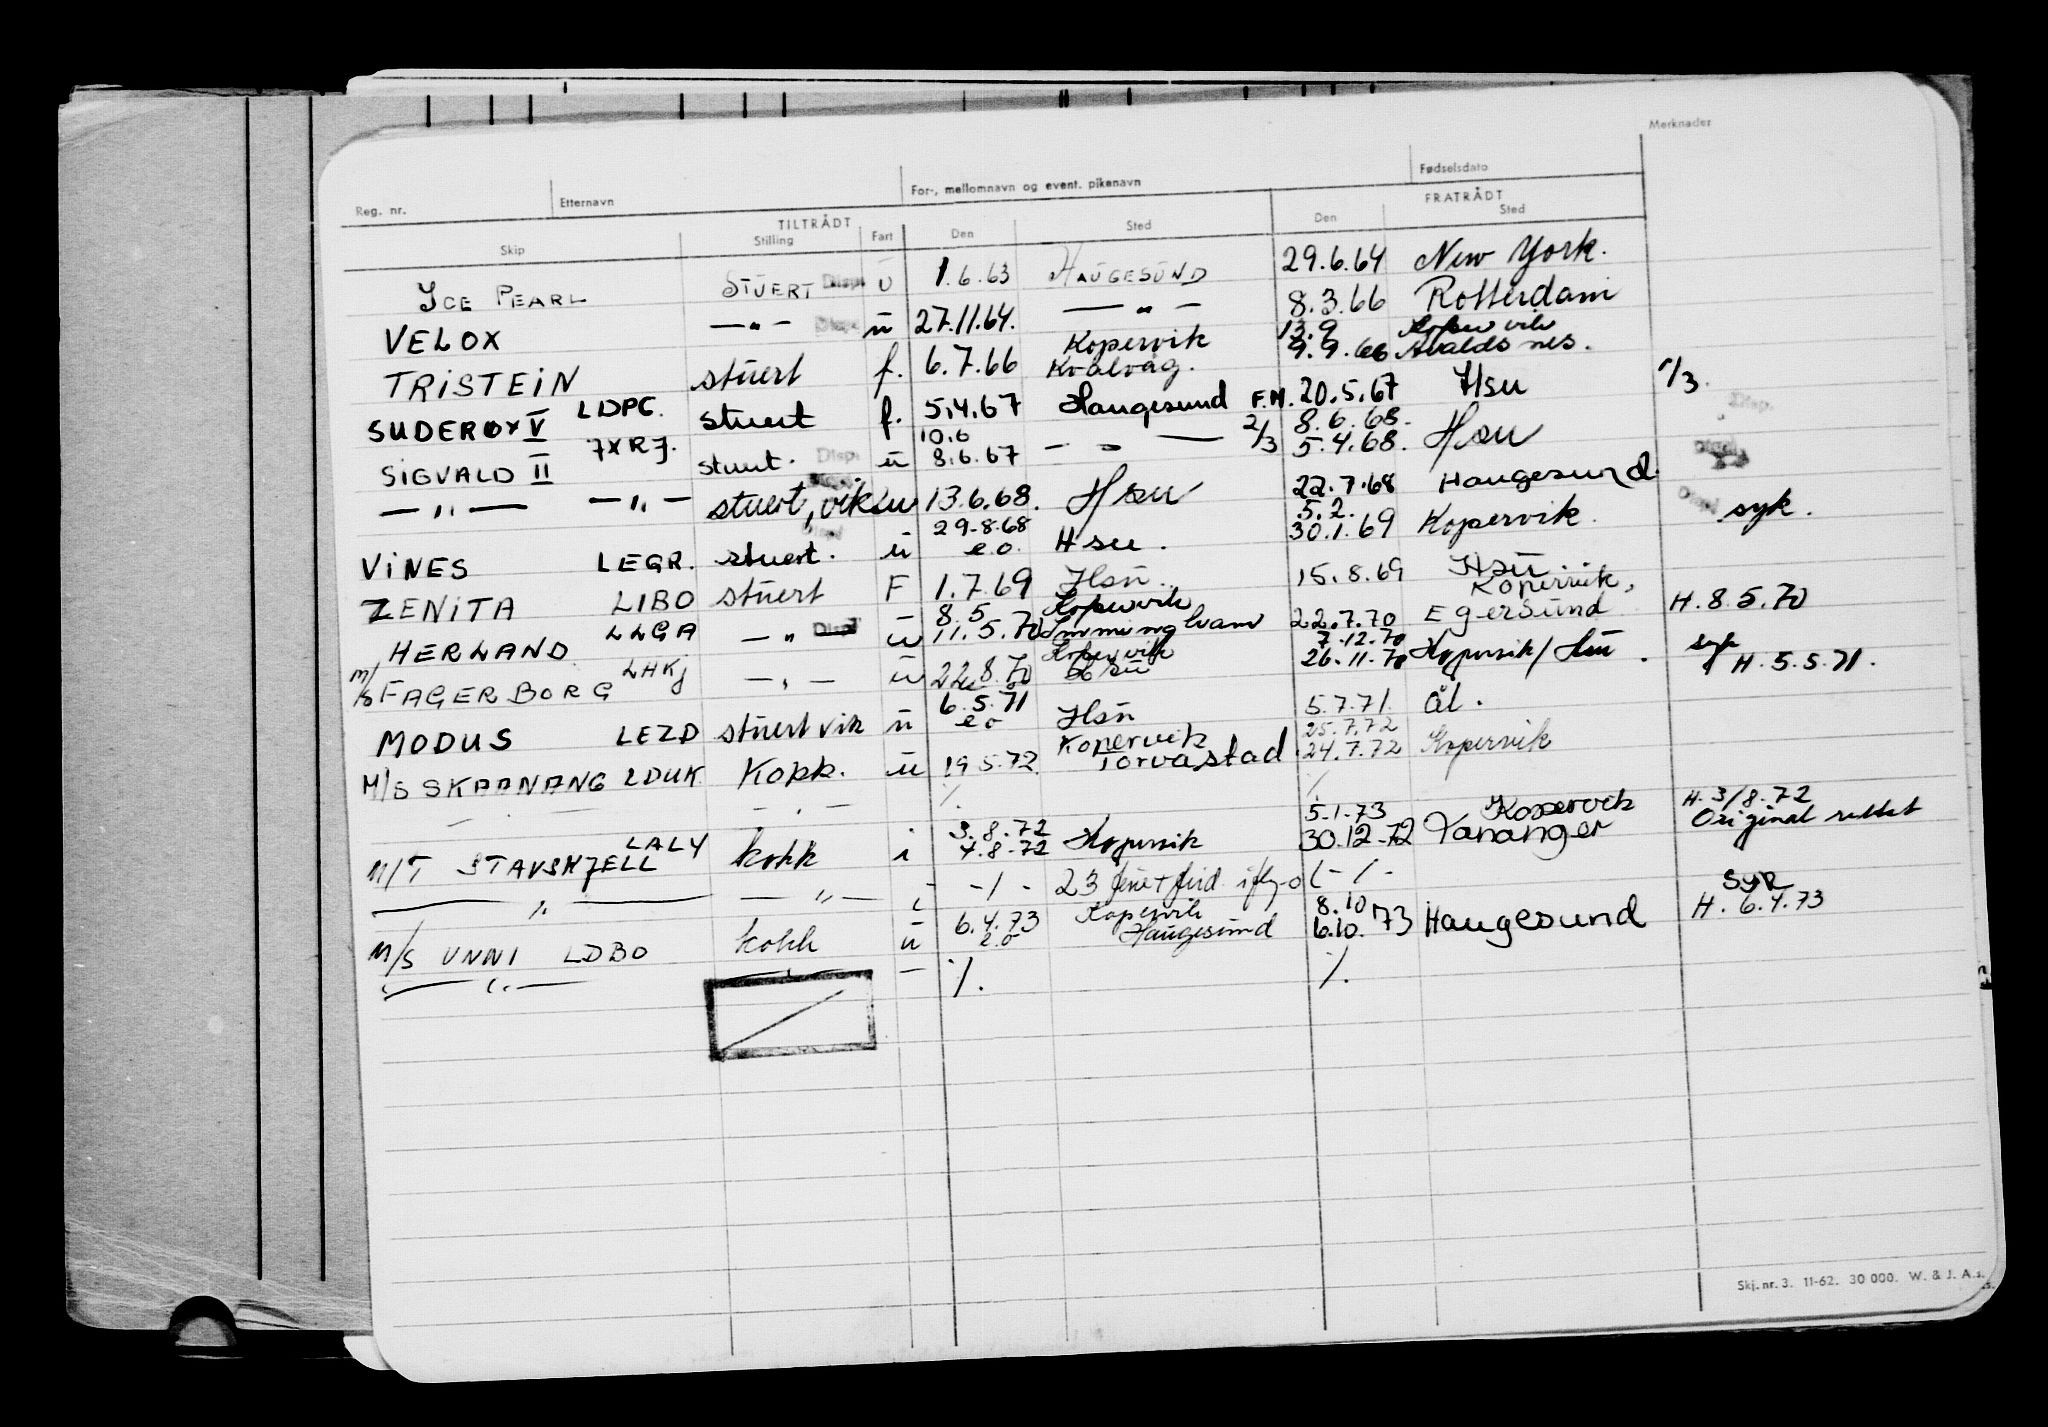 Merknader
Reg. nr. Etternavn For-, mellomnavn og event. pikenavn Fødselsdato
TILTRÅDT FRATRÅDT
Skip Stilling Fart Den Sted Den Sted
ICE PEARL STUERT Disp. U 1.6.63 HAUGESUND 29.6.64 New York.
VELOX —„— Disp. u 27.11.64. —„— 8.3.66 Rotterdam
13.9 Kopervik
TRISTEIN stuert f. 6.7.66 Kopervik Kvalvåg. 9.9.66 Avaldsnes.
SUDEROY V LDPG. stuert f. 5.4.67 Haugesund F.M. 20.5.67 Hsu 1/3.
10.6 2/3 8.6.68. Disp.
SIGVALD II JXRJ. stuert. Disp. u 8.6.67 —„— 5.4.68. Hsu
—„— —„— stuert, vik u 13.6.68. Hsu 22.7.68 Haugesund.
29.8.68 5.2.
VINES LEGR. stuert. u e.o. Hsu. 30.1.69 Kopervik. Disp syk.
ZENITA LIBO stuert F 1.7.69 Hsu. 15.8.69 Hsu.
8.5 Kopervik Kopervik,
HERLAND LLGA —„— Disp u 11.5.70 Immingham 22.7.70 Egersund H. 8.5.70
Kopervik 7.12.70
M/S FAGERBORG LHKJ —„— u 22.8.70 Hsu 26.11.70 Kopervik/Hsu. syk H. 5.5.71.
6.5.71
MODUS LEZD stuert vik u e o Hsu 5.7.71. Ål.
Kopervik 25.7.72
M/S SKAANANG LDUK Kokk. u 19.5.72. Torvastad. 24.7.72 Kopervik
— —„— %. %
3.8.72 5.1.73 Kopervik H. 3/8.72
M/T STAVSHJELL LALY kokk i 4.8.72 Kopervik 30.12.72 Tananger Original rettet
—„— —„— i -/- 23 -/-
6.4.73 Kopervik 8.10 Syk
M/S UNNI LDBO kokk u e.o Haugesund 6.10.'73 Haugesund H. 6.4.73
—„— —„— — %. %.
Skj. nr. 3. 11-62. 30 000. W. & J. A.s.